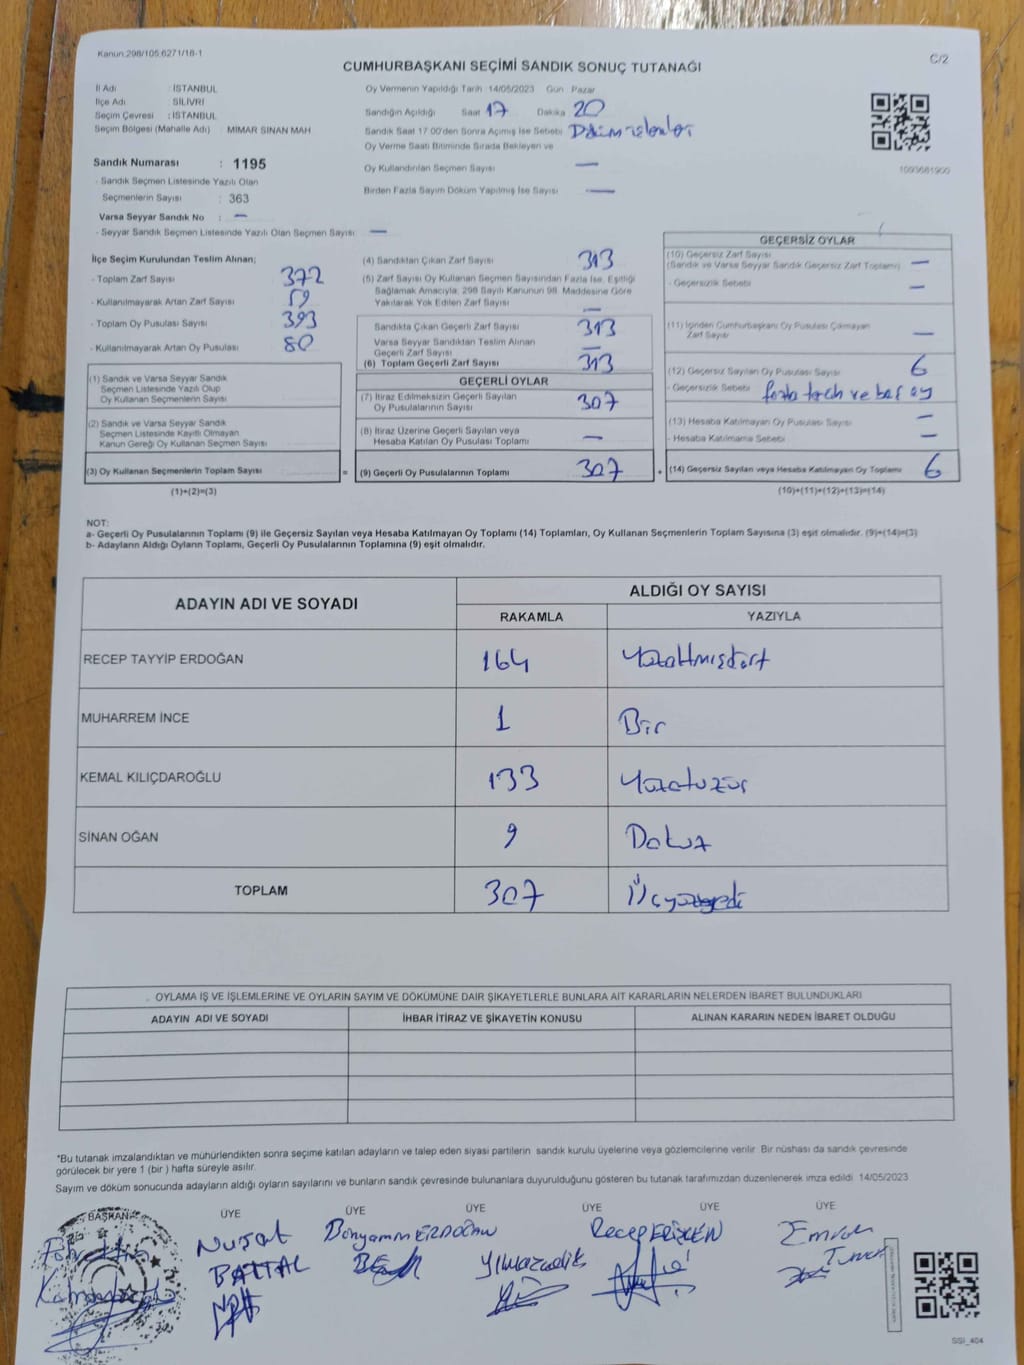 Kanun:298/105,6271/18-1
C/2
CUMHURBAŞKANI SEÇİMİ SANDIK SONUÇ TUTANAĞI
İl Adı : İSTANBUL
İlçe Adı : SİLİVRİ
Seçim Çevresi : İSTANBUL
Seçim Bölgesi (Mahalle Adı) : MIMAR SINAN MAH
Sandık Numarası : 1195
- Sandık Seçmen Listesinde Yazılı Olan
Seçmenlerin Sayısı : 363
Varsa Seyyar Sandık No : —
- Seyyar Sandık Seçmen Listesinde Yazılı Olan Seçmen Sayısı: —
Oy Vermenin Yapıldığı Tarih :14/05/2023 Gün Pazar
Sandığın Açıldığı Saat 17 Dakika 20
Sandık Saat 17:00'den Sonra Açılmış İse Sebebi
Oy Verme Saati Bitiminde Sırada Bekleyen ve
Oy Kullandırılan Seçmen Sayısı —
Birden Fazla Sayım Döküm Yapılmış İse Sayısı —
1093681900
İlçe Seçim Kurulundan Teslim Alınan;
- Toplam Zarf Sayısı 372
- Kullanılmayarak Artan Zarf Sayısı 59
- Toplam Oy Pusulası Sayısı 393
- Kullanılmayarak Artan Oy Pusulası 80
(1) Sandık ve Varsa Seyyar Sandık
Seçmen Listesinde Yazılı Olup
Oy Kullanan Seçmenlerin Sayısı
(2) Sandık ve Varsa Seyyar Sandık
Seçmen Listesinde Kayıtlı Olmayan
Kanun Gereği Oy Kullanan Seçmen Sayısı
(3) Oy Kullanan Seçmenlerin Toplam Sayısı =
(1)+(2)=(3)
(4) Sandıktan Çıkan Zarf Sayısı 313
(5) Zarf Sayısı Oy Kullanan Seçmen Sayısından Fazla İse, Eşitliği
Sağlamak Amacıyla; 298 Sayılı Kanunun 98. Maddesine Göre
Yakılarak Yok Edilen Zarf Sayısı —
Sandıkta Çıkan Geçerli Zarf Sayısı 313
Varsa Seyyar Sandıktan Teslim Alınan
Geçerli Zarf Sayısı —
(6) Toplam Geçerli Zarf Sayısı 313
GEÇERLİ OYLAR
(7) İtiraz Edilmeksizin Geçerli Sayılan
Oy Pusulalarının Sayısı 307
(8) İtiraz Üzerine Geçerli Sayılan veya
Hesaba Katılan Oy Pusulası Toplamı —
(9) Geçerli Oy Pusulalarının Toplamı 307 +
GEÇERSİZ OYLAR
(10) Geçersiz Zarf Sayısı
(Sandık ve Varsa Seyyar Sandık Geçersiz Zarf Toplamı) —
- Geçersizlik Sebebi —
(11) İçinden Cumhurbaşkanı Oy Pusulası Çıkmayan
Zarf Sayısı —
(12) Geçersiz Sayılan Oy Pusulası Sayısı 6
- Geçersizlik Sebebi fazla tercih ve boş oy
(13) Hesaba Katılmayan Oy Pusulası Sayısı —
- Hesaba Katılmama Sebebi —
(14) Geçersiz Sayılan veya Hesaba Katılmayan Oy Toplamı 6
(10)+(11)+(12)+(13)=(14)
NOT:
a- Geçerli Oy Pusulalarının Toplamı (9) ile Geçersiz Sayılan veya Hesaba Katılmayan Oy Toplamı (14) Toplamları, Oy Kullanan Seçmenlerin Toplam Sayısına (3) eşit olmalıdır. (9)+(14)=(3)
b- Adayların Aldığı Oyların Toplamı, Geçerli Oy Pusulalarının Toplamına (9) eşit olmalıdır.
ADAYIN ADI VE SOYADI
ALDIĞI OY SAYISI
RAKAMLA YAZIYLA
RECEP TAYYİP ERDOĞAN 164 Yüzaltmışdört
MUHARREM İNCE 1 Bir
KEMAL KILIÇDAROĞLU 133 Yüzotuzüç
SİNAN OĞAN 9 Dokuz
TOPLAM 307 Üçyüzyedi
OYLAMA İŞ VE İŞLEMLERİNE VE OYLARIN SAYIM VE DÖKÜMÜNE DAİR ŞİKAYETLERLE BUNLARA AİT KARARLARIN NELERDEN İBARET BULUNDUKLARI
ADAYIN ADI VE SOYADI İHBAR İTİRAZ VE ŞİKAYETİN KONUSU ALINAN KARARIN NEDEN İBARET OLDUĞU
*Bu tutanak imzalandıktan ve mühürlendikten sonra seçime katılan adayların ve talep eden siyasi partilerin sandık kurulu üyelerine veya gözlemcilerine verilir. Bir nüshası da sandık çevresinde
görülecek bir yere 1 (bir ) hafta süreyle asılır.
Sayım ve döküm sonucunda adayların aldığı oyların sayılarını ve bunların sandık çevresinde bulunanlara duyurulduğunu gösteren bu tutanak tarafımızdan düzenlenerek imza edildi 14/05/2023
BAŞKAN ÜYE ÜYE ÜYE ÜYE ÜYE ÜYE
Nusat
BATTAL
Bünyamin ERDOĞAN
Yılmaz
Recep
Emrah
SSİ_404